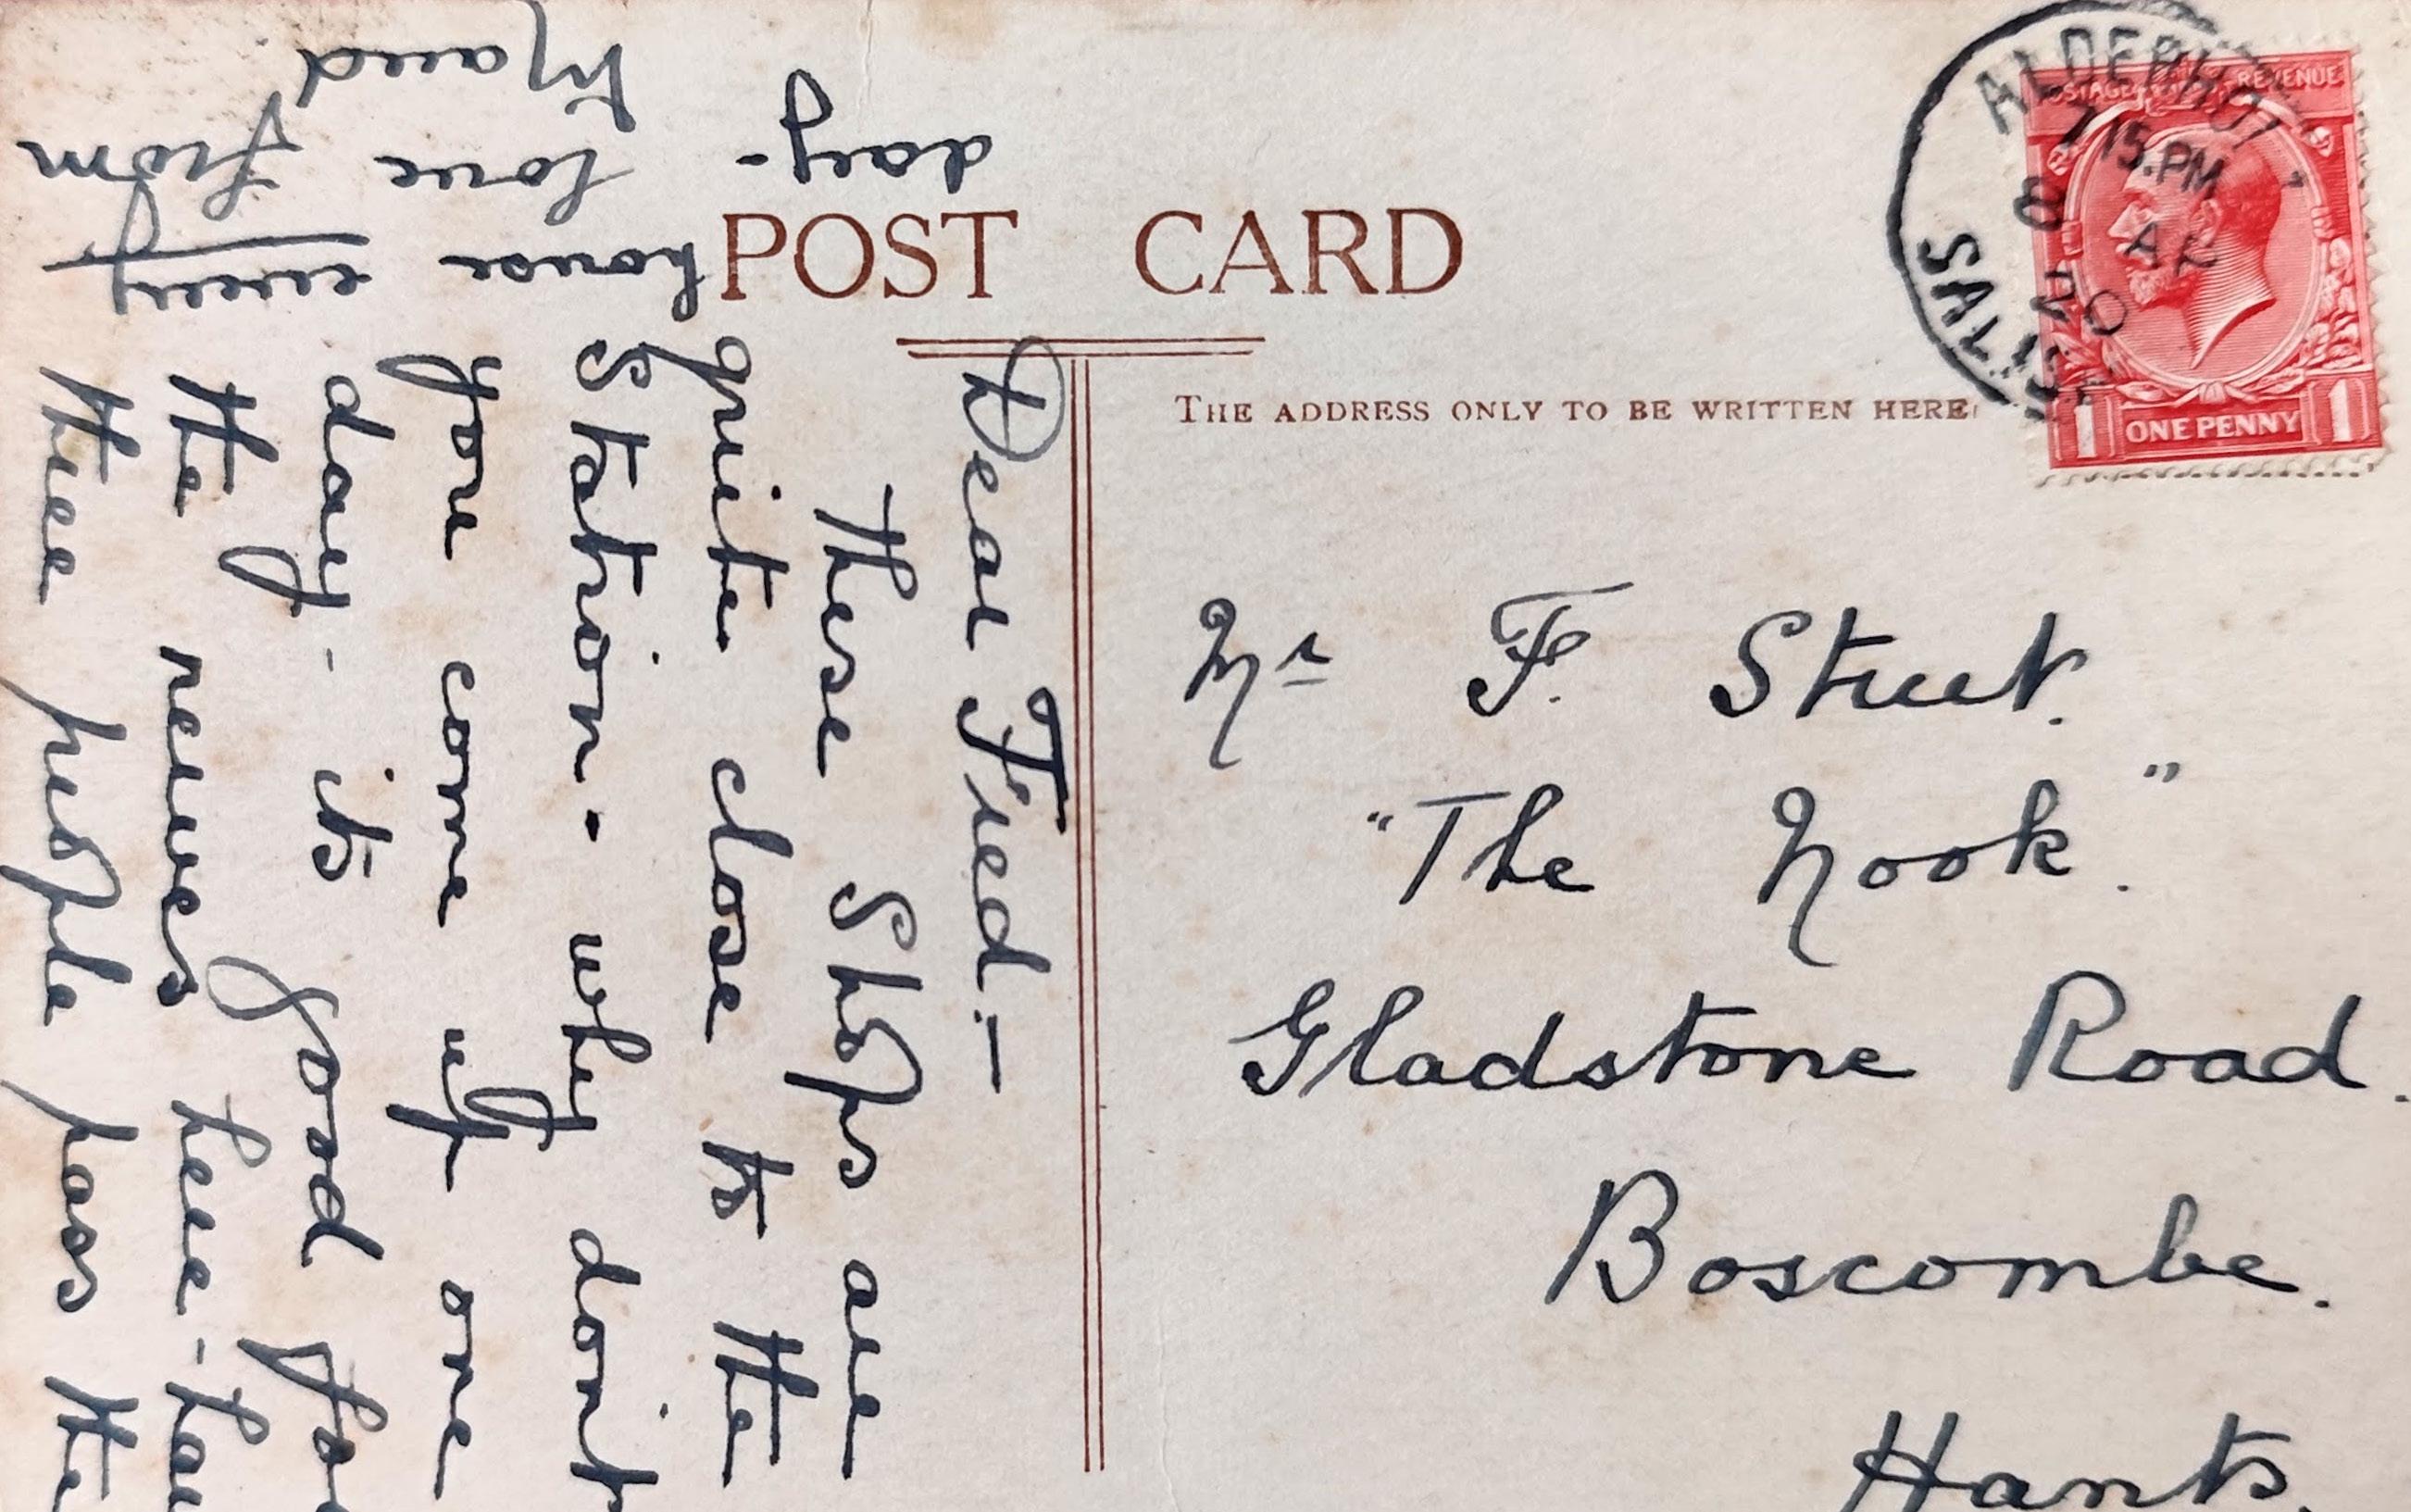 POST CARD
THE ADDRESS ONLY TO BE WRITTEN HERE
Dear Fred:-
These Shops are
quite close to the
Station. why dont
you come up one
day - its good fo
the nerves here -
three people pass the
house every
day. love from
Maud
Mr F. Street.
"The Nook".
Gladstone Road.
Boscombe.
Hants.
POSTAGE REVENUE
1 ONE PENNY 1
ALDERHOLT
7 15.PM
8 AP
20